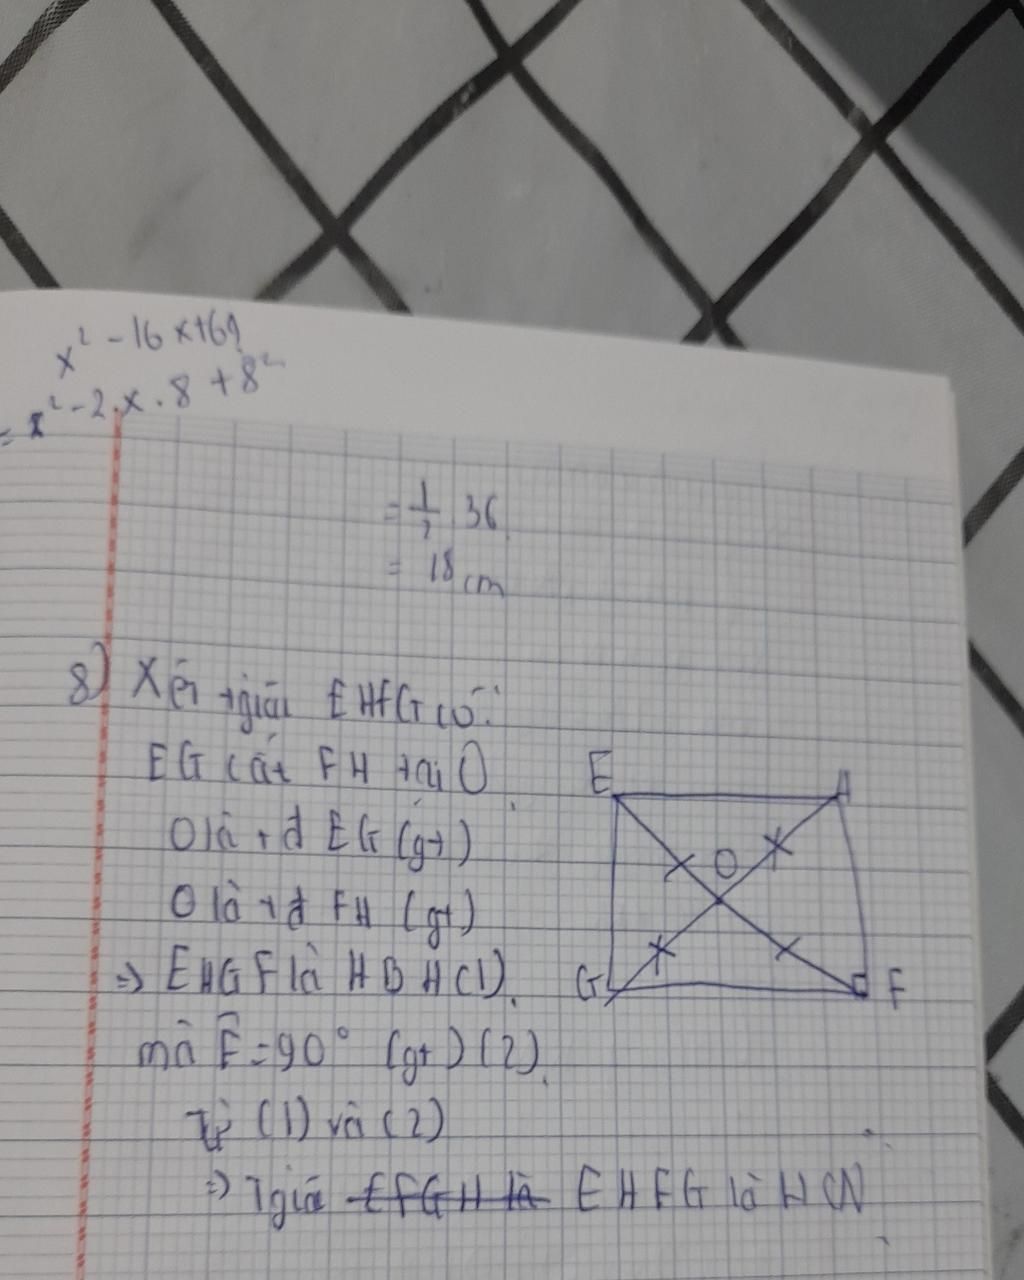 x² - 16x + 64
= x² - 2.x.8 + 8²
= 1/2 36
= 18 cm
8) Xét tgiác EHFG có:
EG cắt FH tại O
O là tđ EG (gt)
O là tđ FH (gt)
=> EHGF là HBH (1).
mà F̂ = 90° (gt) (2)
Từ (1) và (2)
=> Tgiá EFGH là EHFG là HCN
E
H
O
G
F